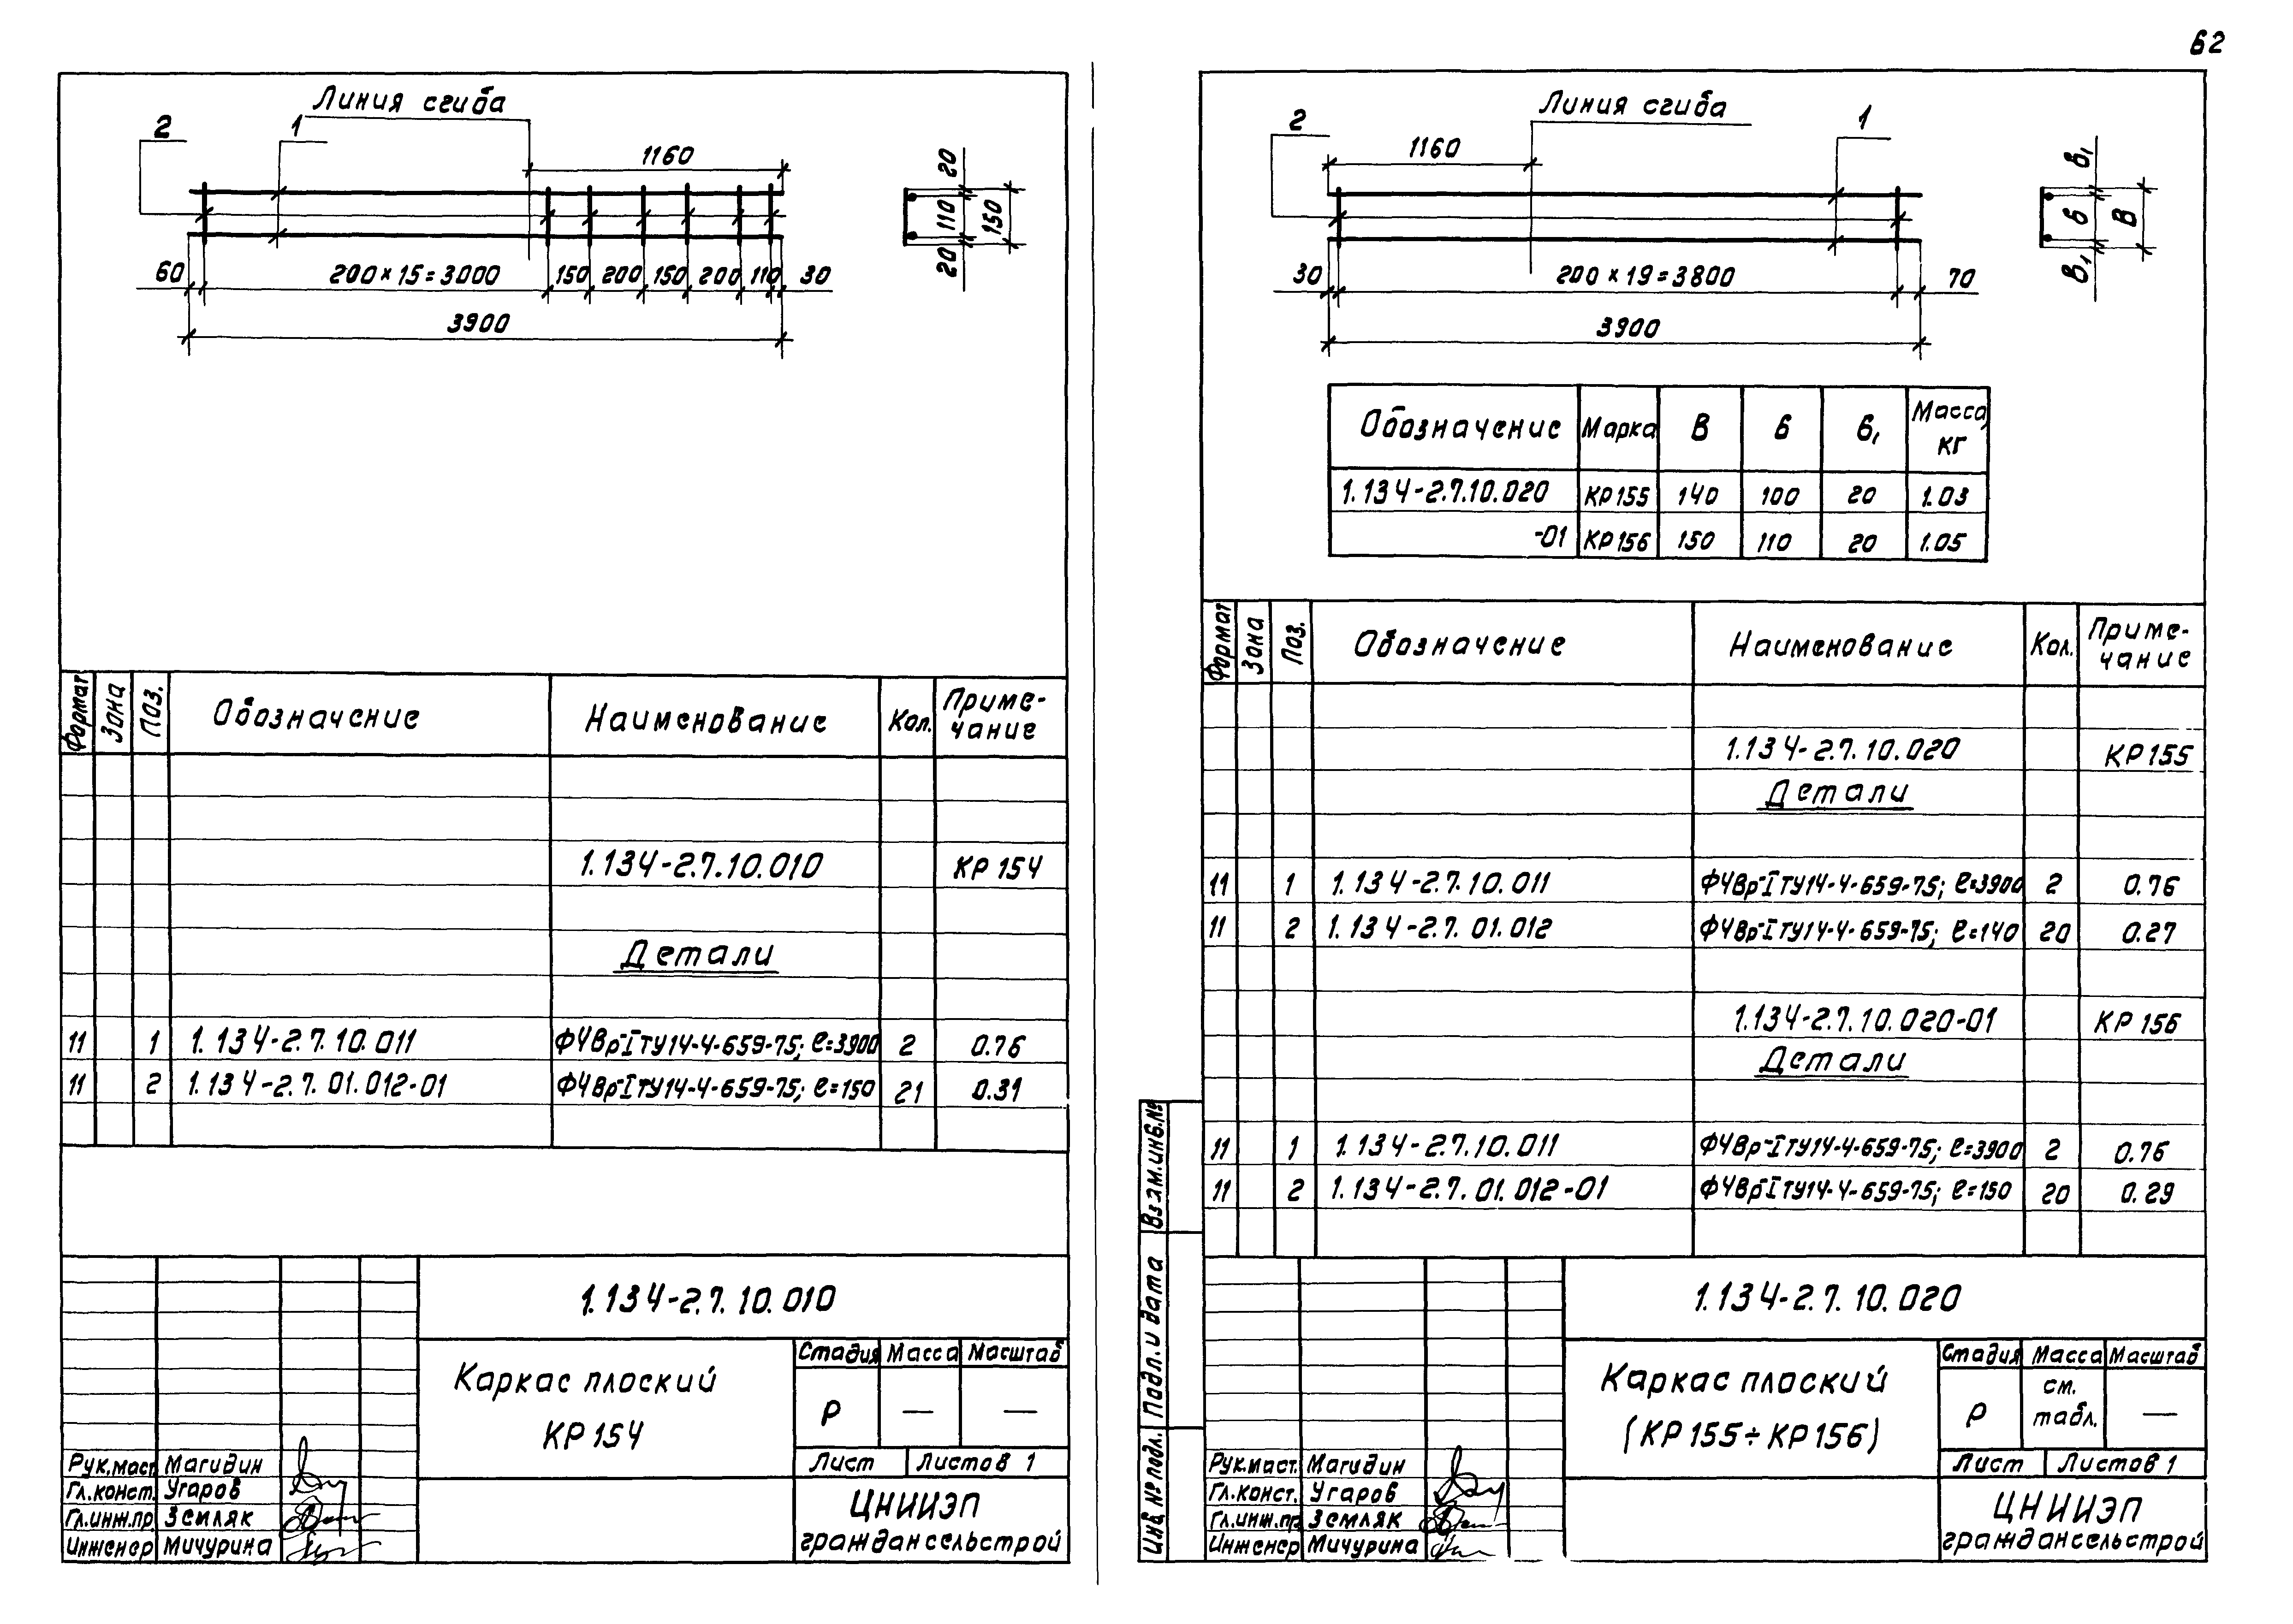 62
Линия сгиба
2
1
1160
20
110
150
20
60
200×15=3000
150
200
150
200
110
30
3900
Формат Зона Поз. Обозначение Наименование Кол. Приме-
чание
1.134-2.7.10.010 КР 154
Детали
11 1 1.134-2.7.10.011 Ф4Вр-I ТУ14-4-659-75; ℓ=3900 2 0.76
11 2 1.134-2.7.01.012-01 Ф4Вр-I ТУ14-4-659-75; ℓ=150 21 0.31
1.134-2.7.10.010
Каркас плоский
КР 154
Стадия Масса Масштаб
Р — —
Лист Листов 1
ЦНИИЭП
граждансельстрой
Рук.маст. Магидин
Гл.конст. Угаров
Гл.инж.пр. Земляк
Инженер Мичурина
Линия сгиба
2
1
1160
в₁
в
В
в₁
30
200×19=3800
70
3900
Обозначение Марка В в в₁ Масса,
кг
1.134-2.7.10.020 КР155 140 100 20 1.03
-01 КР156 150 110 20 1.05
Формат Зона Поз. Обозначение Наименование Кол. Приме-
чание
1.134-2.7.10.020 КР155
Детали
11 1 1.134-2.7.10.011 Ф4Вр-I ТУ14-4-659-75; ℓ=3900 2 0.76
11 2 1.134-2.7.01.012 Ф4Вр-I ТУ14-4-659-75; ℓ=140 20 0.27
1.134-2.7.10.020-01 КР 156
Детали
11 1 1.134-2.7.10.011 Ф4Вр-I ТУ14-4-659-75; ℓ=3900 2 0.76
11 2 1.134-2.7.01.012-01 Ф4Вр-I ТУ14-4-659-75; ℓ=150 20 0.29
Взам.инв.№
Подп. и дата
Инв.№ подл.
1.134-2.7.10.020
Каркас плоский
(КР155÷КР156)
Стадия Масса Масштаб
Р см.
табл. —
Лист Листов 1
ЦНИИЭП
граждансельстрой
Рук.маст. Магидин
Гл.конст. Угаров
Гл.инж.пр. Земляк
Инженер Мичурина